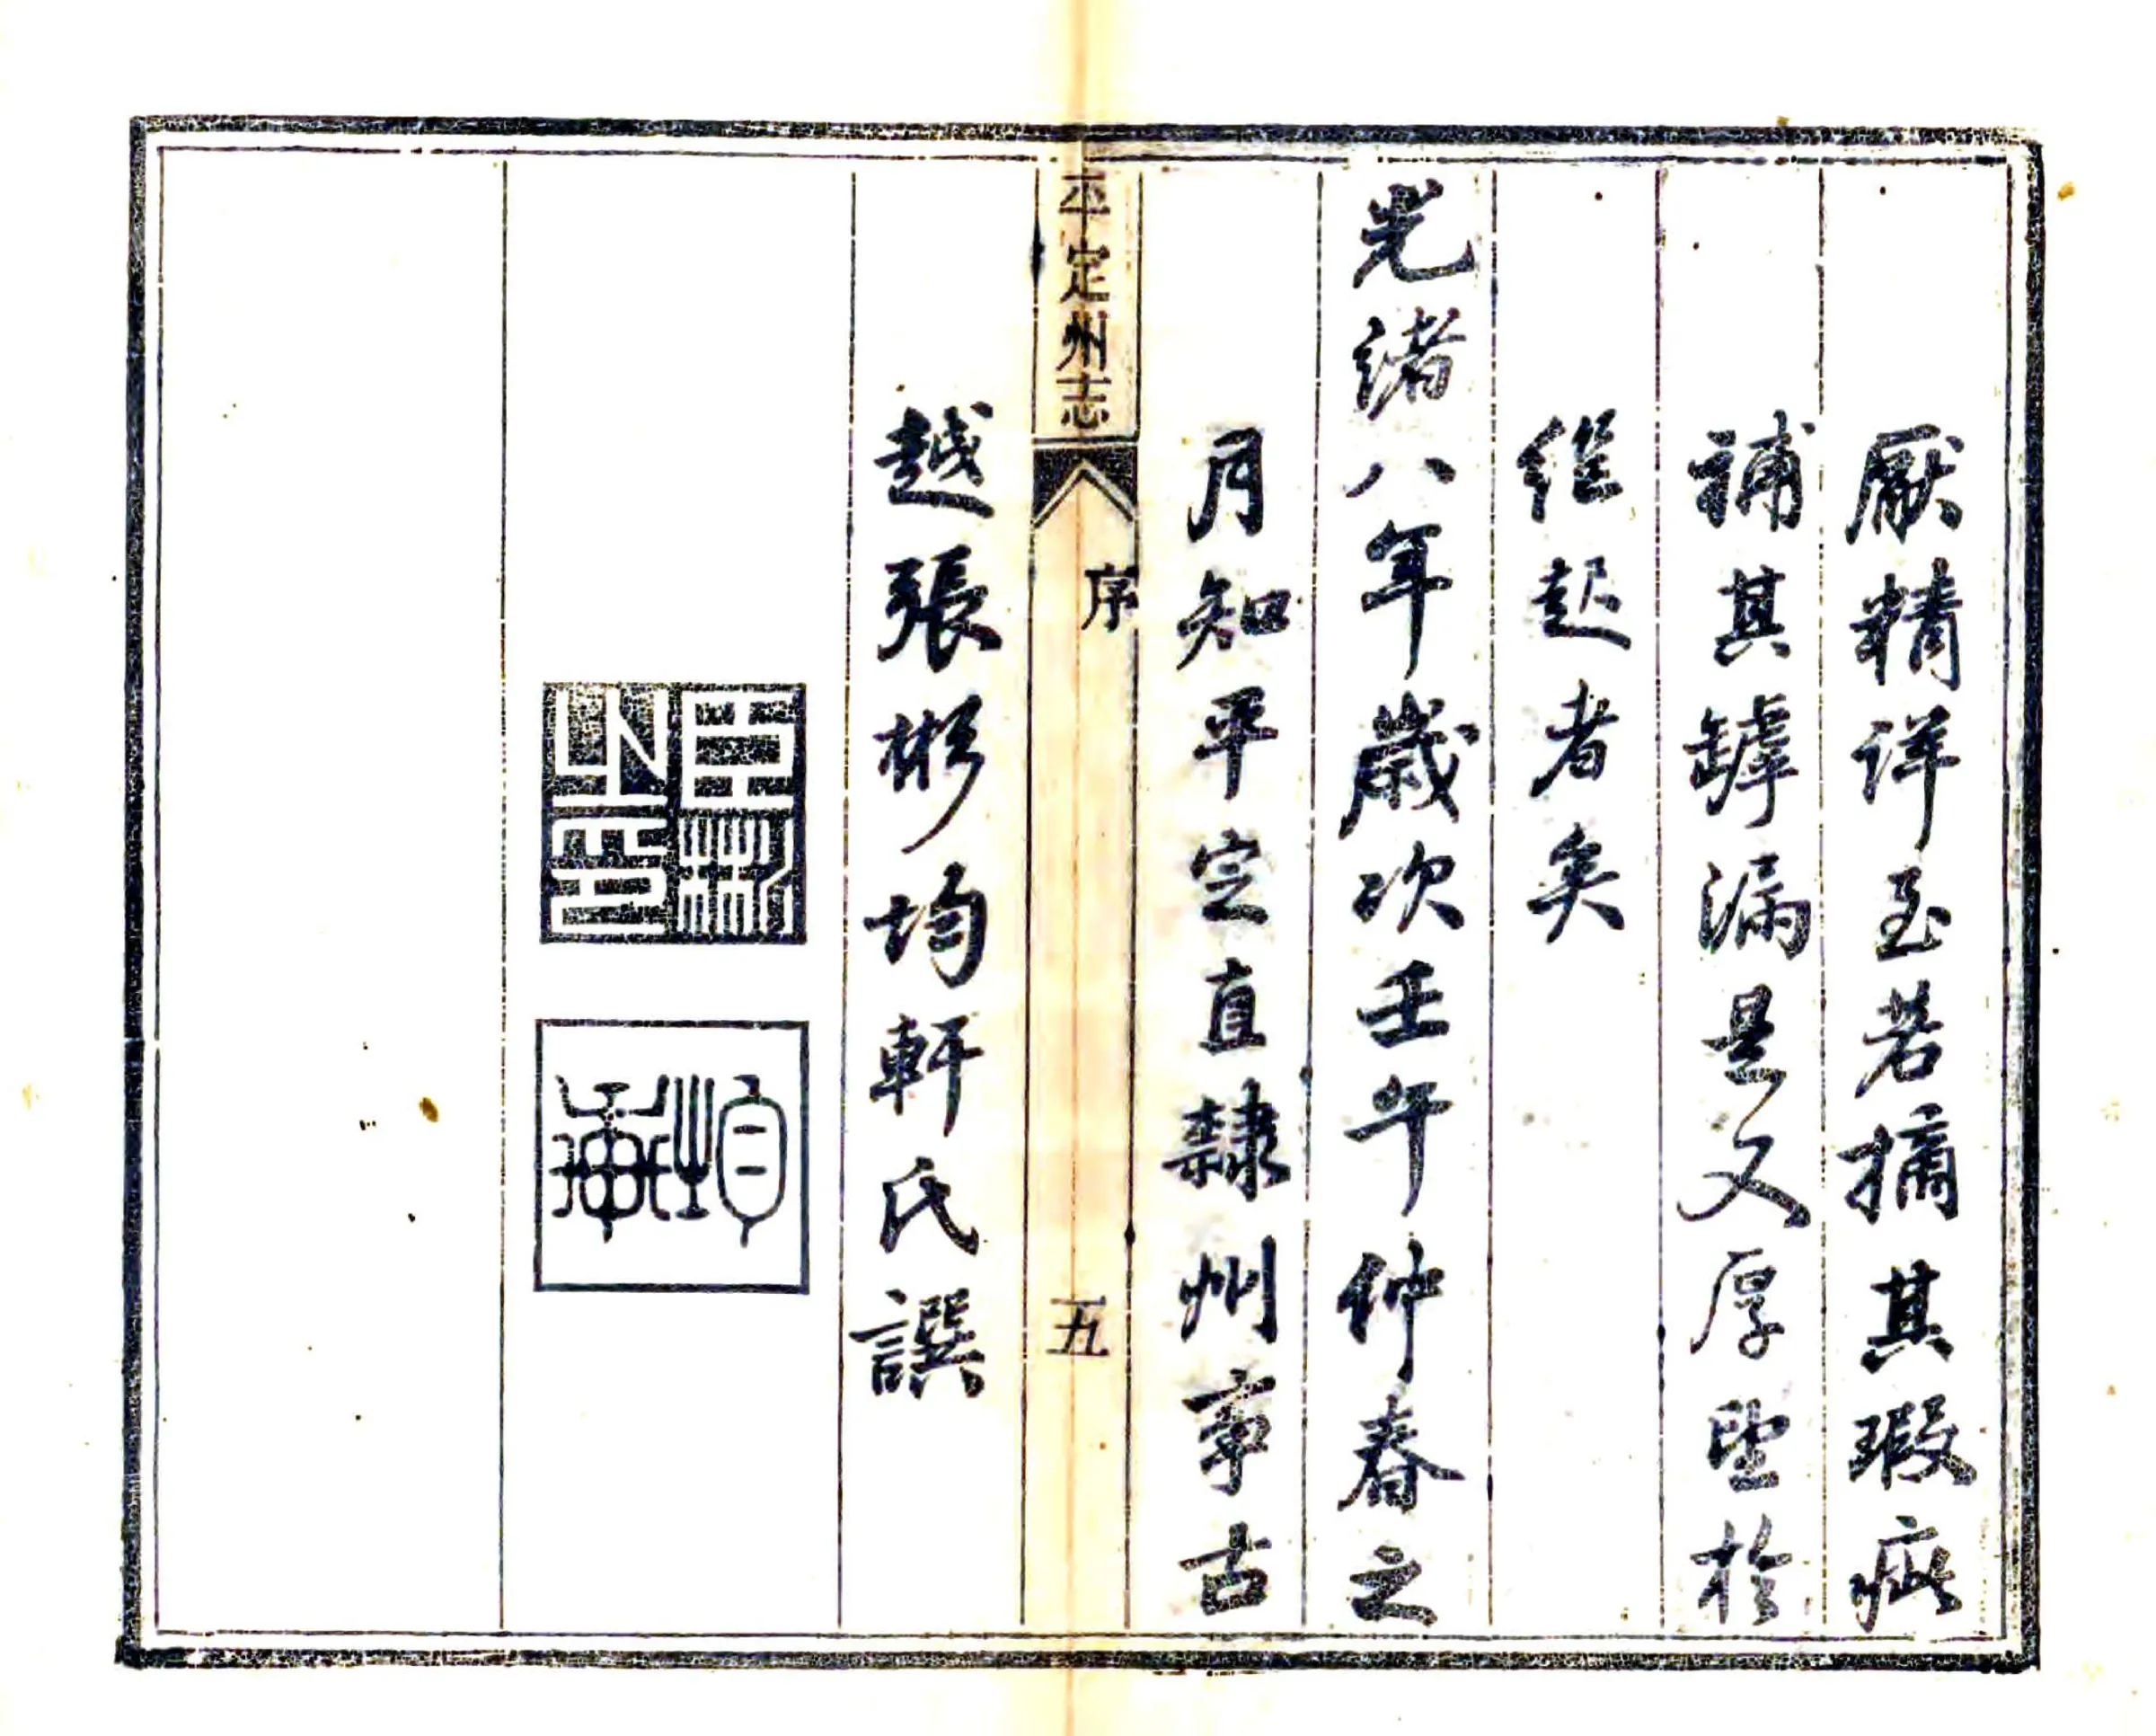 厭精詳至若摘其瑕疵
補其罅漏是又厚望於
継起者矣
光緒八年歲次壬午仲春之
月知平定直隸州事古
平定州志
序
五
越張彬均軒氏譔
臣彬之印